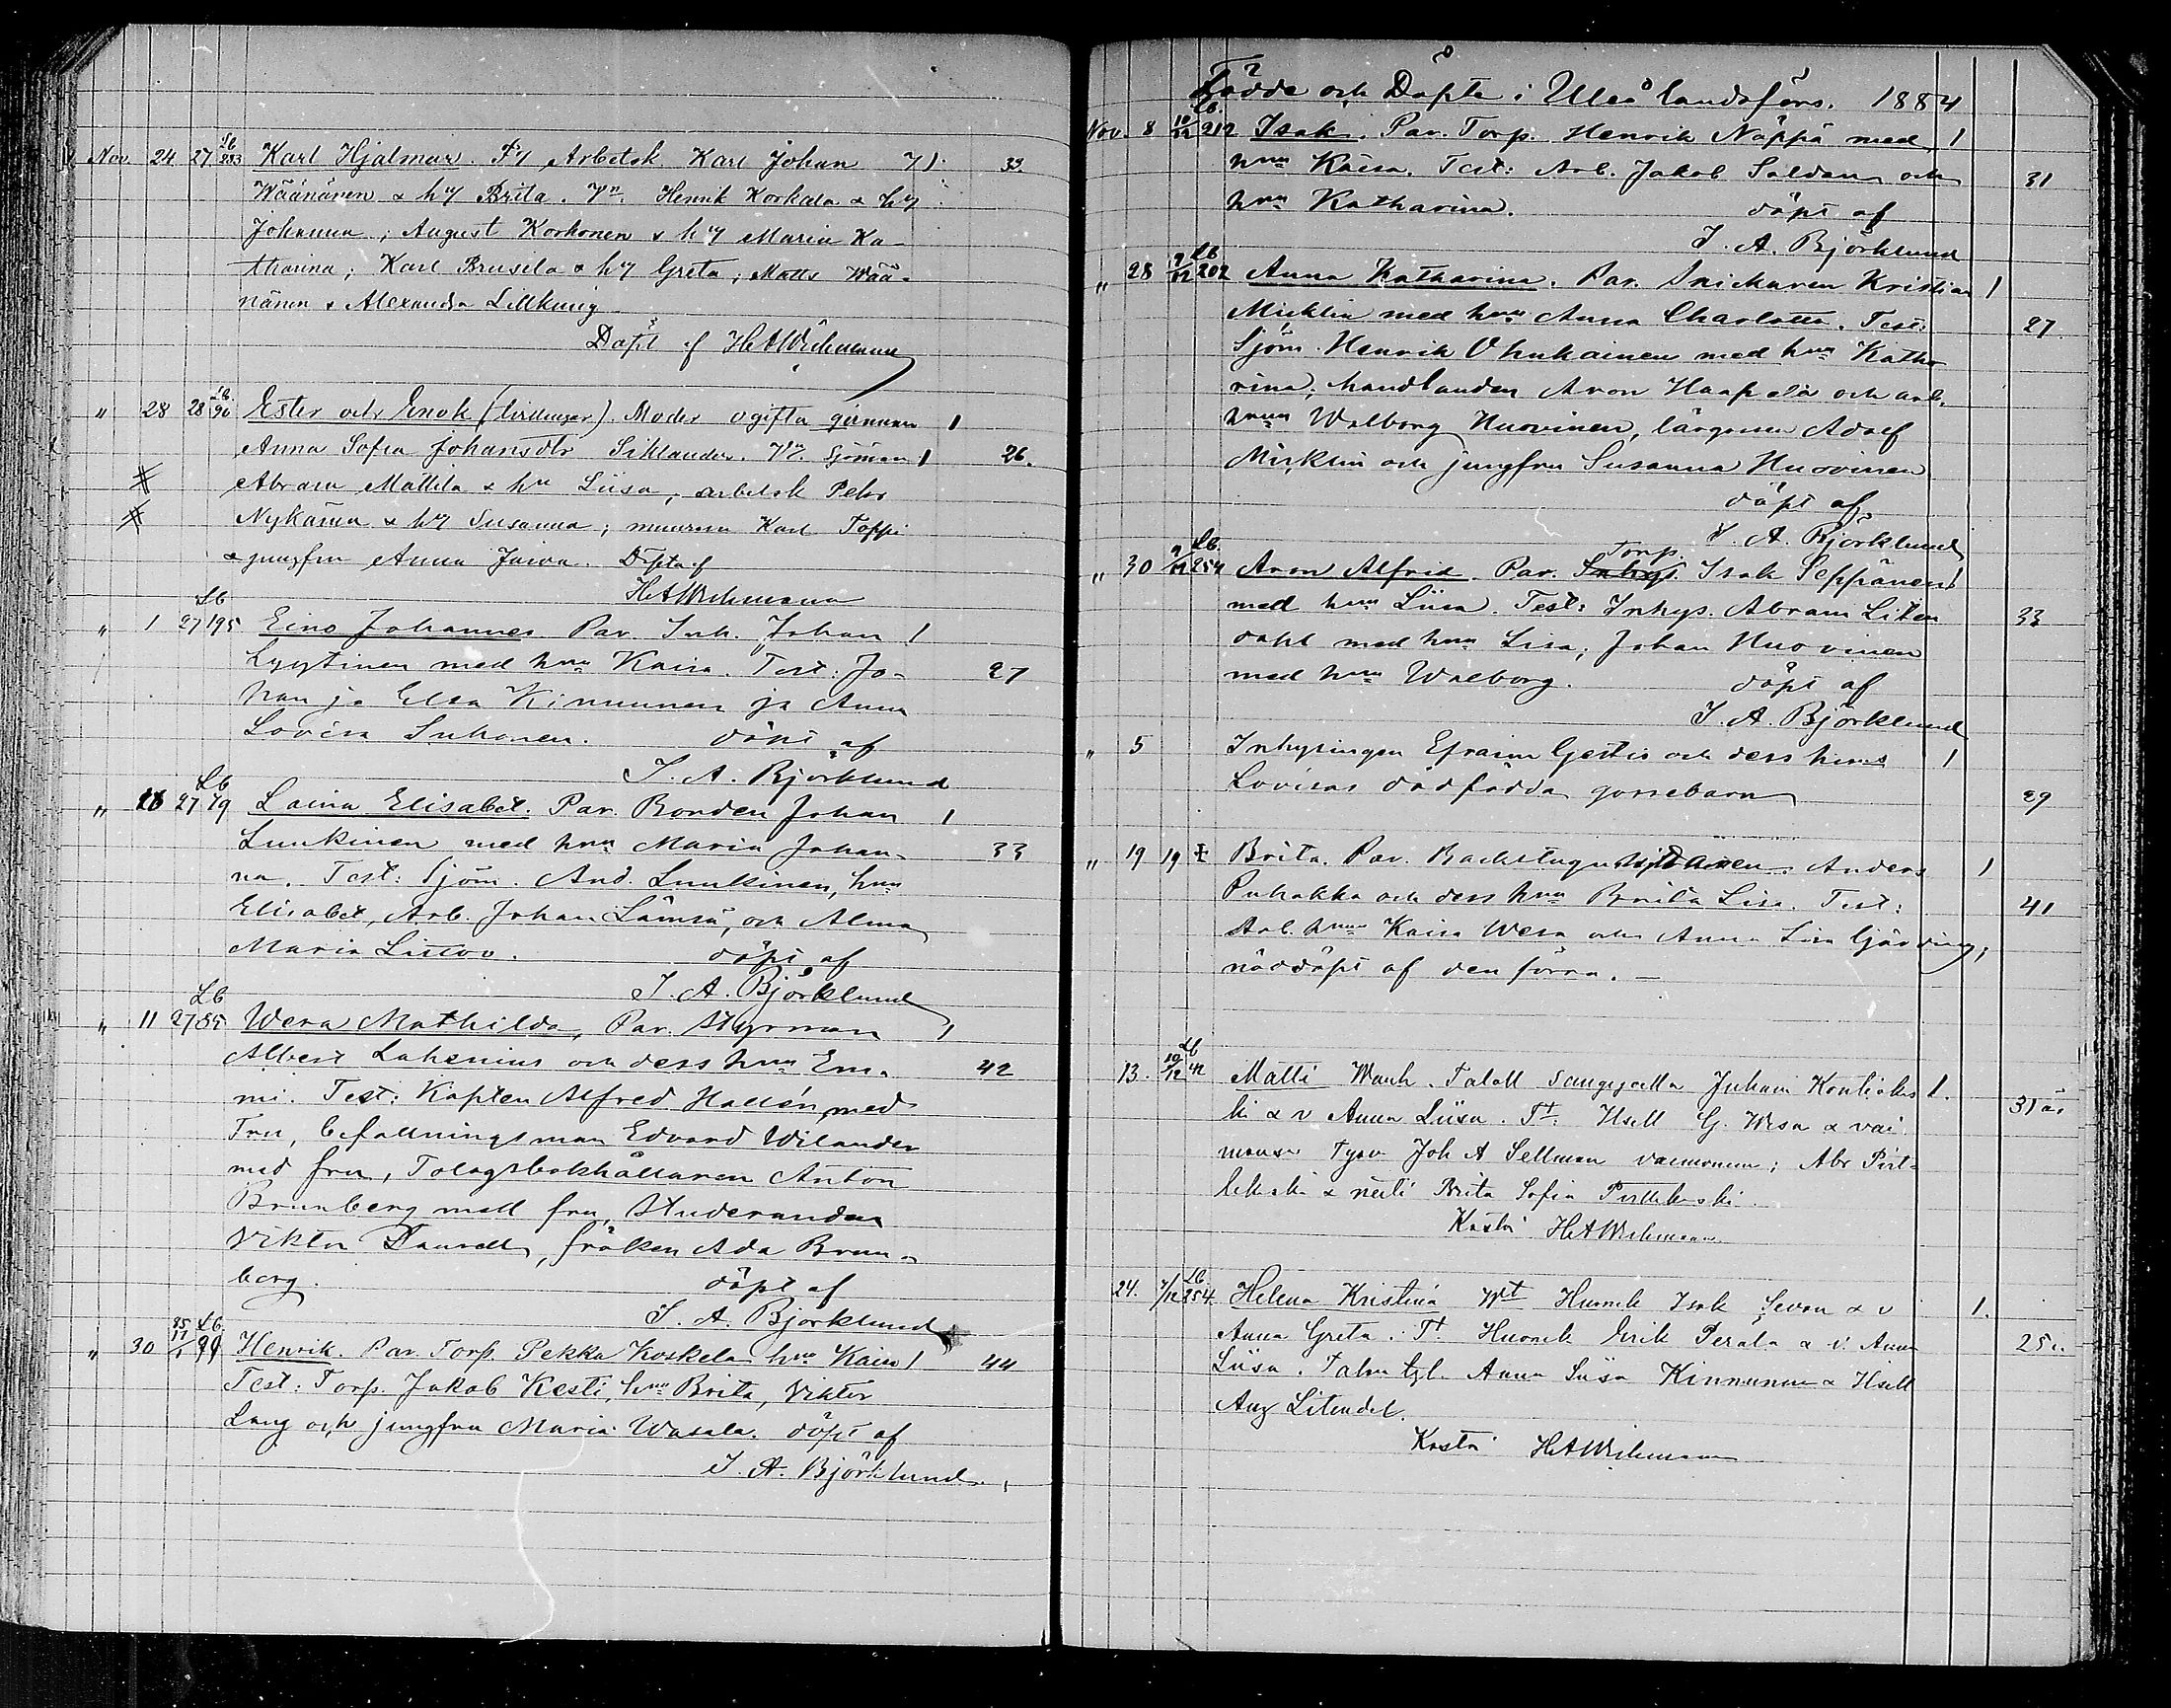 Nov 24 27 Lb 283 Karl Hjalmar. Fr Arbetsk Karl Johan 1 33.
Wäänänen & hu Brita. Vn. Henrik Korkala & hu
Johanna; August Korhonen & hu Maria Ka-
tharina; Karl Brusila & hu Greta; Matts Wää-
nänen & Alexandra Lillkung
Döpt af HAWichmann
" 28 28 Lb. 90 Ester och Enok (tvillingar). Moder ogifta qvinnan 1
Anna Sofia Johansdtr Siklander. Vn. Sjöman 1 26.
Abram Mattila & hu Liisa, arbetsk Pehr
Nykänen & hu Susanna; muraren Karl Toppi
& jungfru Anna Juiva. Döpta af
HAWichmann
" 1 27 Lb 195 Eino Johannes Par. Inh. Johan 1
Lyytinen med hru Kaisa. Test: Jo- 27
han ja Elsa Kinnunen ja Anna
Lovisa Suhonen. döpt af
J. A. Björklund
" 26 27 Lb 79 Laina Elisabet. Par. Bonden Johan 1
Luukinen med hru Maria Johan- 33
na. Test: Sjöm. And. Luukinen, hru
Elisabet, Arb. Johan Lämsä, och Alma
Maria Listov. döpt af
J. A. Björklund
" 11 27 Lb 85 Wera Mathilda, Par. Styrman 1
Albert Lahenius och dess hru Em- 42
mi. Test: Kapten Alfred Hallén med
Fru, befallningsman Edvard Wilander
med fru, Tolagsbokhållaren Anton
Brunberg med fru, Studeranden
Viktor Daurell, fröken Ada Brun-
berg. döpt af
J. A. Björklund
" 30 Lb. 99 Henrik. Par. Torp. Pekka Koskela hru Kaisa 1 44
Test: Torp. Jakob Kesti, hru Brita, Viktor
Lang och jungfru Maria Wasala. döpt af
J. A. Björklund.
Födde och Döpte i Uleå landsförs. 1884
Nov. 8 10/12 Lb. 212 Isak. Par. Torp. Henrik Näppä med 1
hru Kaisa. Test: Arb. Jakob Soldan och 31
hru Katharina. döpt af
J. A. Björklund
" 28 9/12 Lb 202 Anna Katharina. Par. Snickaren Kristian 1
Micklin med hru Anna Charlotta. Test: 27.
Sjöm. Henrik Ohukainen med hru Katha
rina; handlanden Aron Haapala och arb.
hrun Walborg Huovinen, lärgossen Adolf
Micklin och jungfru Susanna Huovinen
döpt af
J. A. Björklund
Torp.
" 30 9/12 Lb. 254 Aron Alfrid. Par. Inhys. Isak Seppänen 1
med hru Liisa. Test: Inhys. Abram Liten 33
dahl med hru Lisa; Johan Huovinen
med hru Walborg. döpt af
J. A. Björklund
" 5 Inhysingen Efraim Gestis och dess hrus 1
Lovisas dödfödda gossebarn 29
" 19 19 Brita. Par. Backstugusittaren Anders 1
Puhakka och dess hru Brita Lisa. Test: 41
Arb. hru Kaisa Wesa och Anna Lisa
nöddöpt af den förra.
13. 10/12 Lb 42 Matti Wanh. Taloll Juhani 1. 31 år
ki & v Anna Liisa. Tt. Itsell G. Wesa & vai
monsa Joh A Sellman vaimonsa; Abr
& neiti Brita Sofia
Kastoi HAWichmann
24. 7/12 Lb. 254. Helena Kristina Wt Huonek Isak Sevon & v 1.
Anna Greta. Tt. Huonek Erik Perala & v. Anna 25
Liisa. Talon tyt. Anna Liisa Kinnunen & Itsell
Aug Litendal.
Kastoi HAWichmann